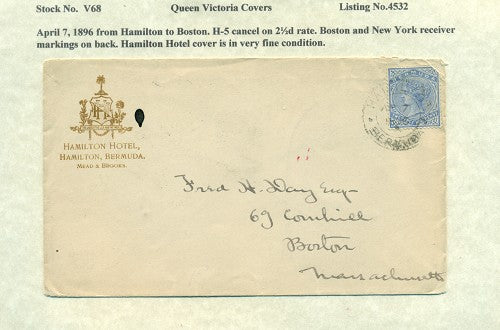 Stock No. V68 Queen Victoria Covers Listing No.4532
April 7, 1896 from Hamilton to Boston. H-5 cancel on 2½d rate. Boston and New York receiver
markings on back. Hamilton Hotel cover is in very fine condition.
HAMILTON HOTEL,
HAMILTON, BERMUDA.
MEAD & BROOKS.
Fred H. Day Esq-
69 Cornhill
Boston
Massachusetts